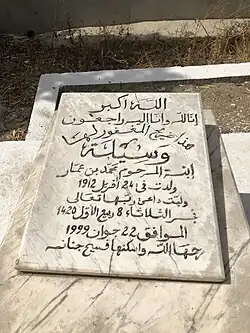 الله أكبر
إنا لله وإنا إليه راجعون
هذا ضريح المغفور لها
وسيلة
ابنة المرحوم محمد بن عمار
ولدت في 24 أفريل 1912
ولبت داعي ربها تعالى
في الثلاثاء 8 ربيع الأول 1420
الموافق 22 جوان 1999
رحمها الله وأسكنها فسيح جنانه